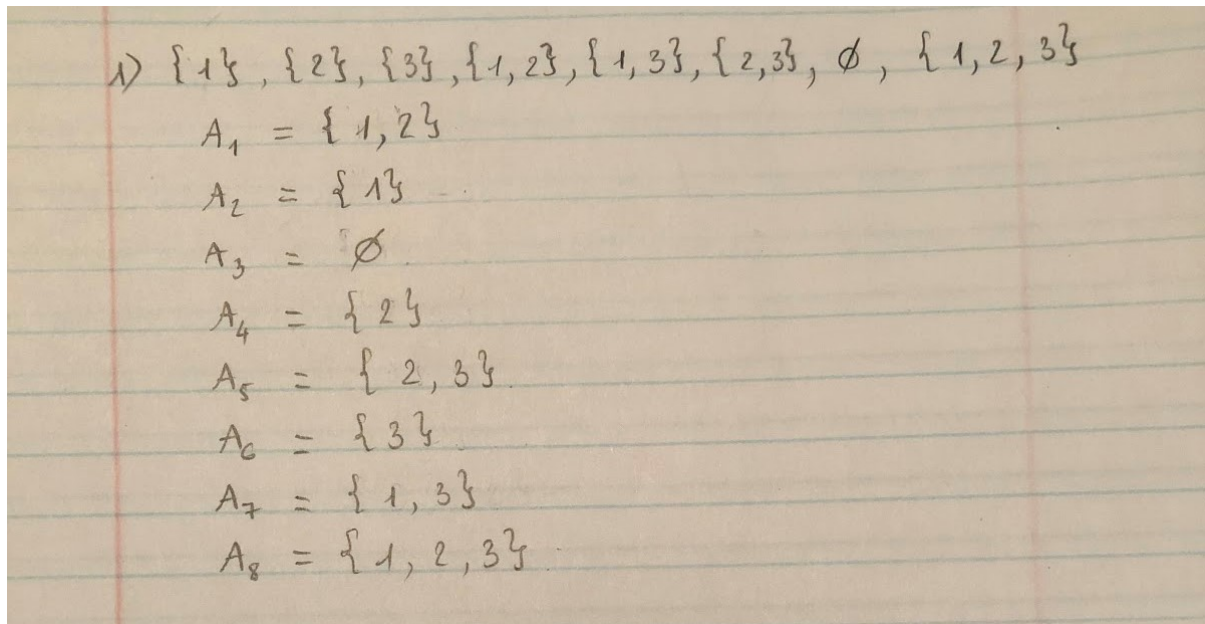 1) {1}, {2}, {3}, {1,2}, {1,3}, {2,3}, ∅, {1, 2, 3}
A₁ = {1,2}
A₂ = {1}
A₃ = ∅
A₄ = {2}
A₅ = {2,3}
A₆ = {3}
A₇ = {1,3}
A₈ = {1, 2, 3}